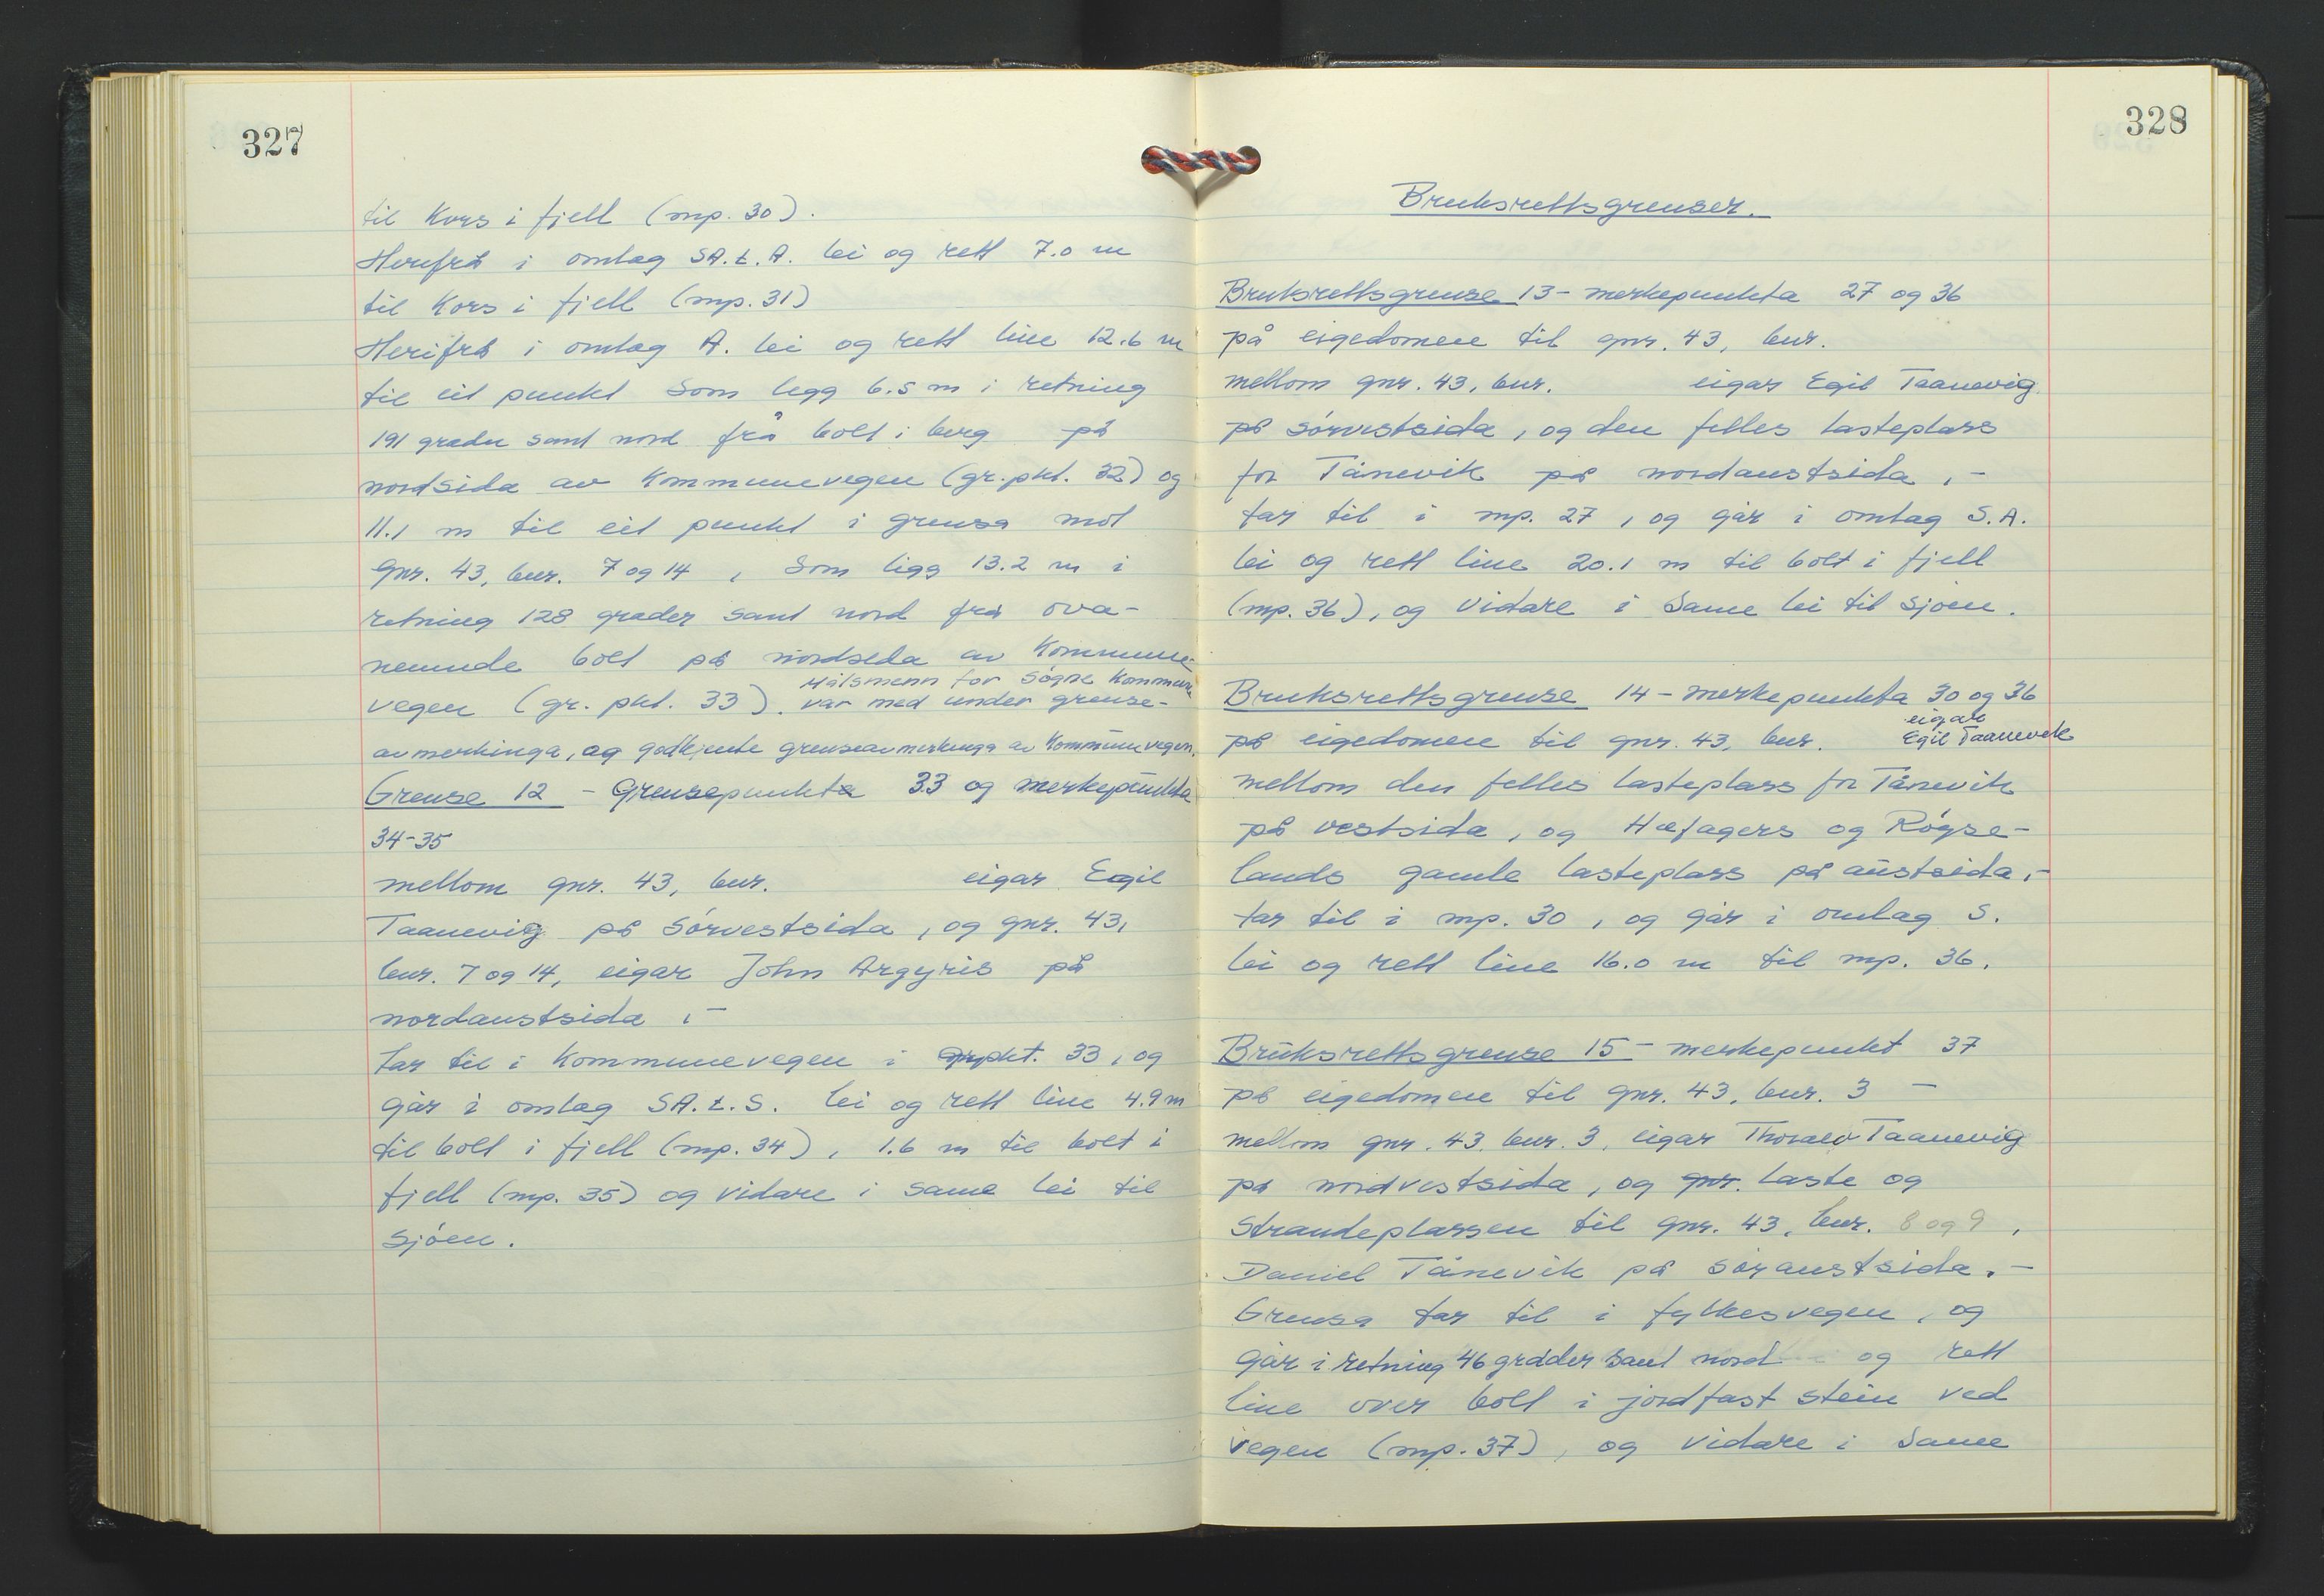 327
til Kors i fjell (mp. 30).
Herifrå i omlag SA.t.A. lei og rett 7.0 m
til Kors i fjell (mp. 31)
Herifrå i omlag A. lei og rett line 12.6 m
til eit punkt som legg 6.5 m i retning
191 grader sant nord frå bolt i berg på
nordsida av Kommunevegen (gr.pkt. 32) og
11.1 m til eit punkt i grensa mot
gnr. 43, bnr. 7 og 14, som ligg 13.2 m i
retning 128 grader sant nord frå ova-
nemnde bolt på nordsida av Kommune-
Målsmenn for Søgne Kommune
vegen (gr. pkt. 33). var med under grense-
avmerkinga, og godkjente grenseavmerkinga av Kommunevegen.
Grense 12 - Grensepunkta 33 og merkepunkta
34-35
mellom gnr. 43, bnr. eigar Egil
Taanevig på sørvestsida, og gnr. 43,
bnr. 7 og 14, eigar John Argyris på
nordaustsida,-
tar til i Kommunevegen i grpkt. 33, og
går i omlag SA.t.S. lei og rett line 4.9 m
til bolt i fjell (mp. 34), 1.6 m til bolt i
fjell (mp. 35) og vidare i same lei til
sjøen.
328
Bruksrettsgrenser.
Bruksrettsgrense 13 - merkepunkta 27 og 36
på eigedomen til gnr. 43, bnr.
mellom gnr. 43, bnr. eigar Egil Taanevig
på sørvestsida, og den felles lasteplass
for Tånevik på nordaustsida,-
tar til i mp. 27, og går i omlag S.A.
lei og rett line 20.1 m til bolt i fjell
(mp. 36), og vidare i same lei til sjøen.
Bruksrettsgrense 14 - merkepunkta 30 og 36
eigar
på eigedomen til gnr. 43, bnr. Egil Taanevik
mellom den felles lasteplass for Tånevik
på vestsida, og Høfagers og Røgse-
lands gamle lasteplass på austsida,-
tar til i mp. 30, og går i omlag S.
lei og rett line 16.0 m til mp. 36.
Bruksrettsgrense 15 - merkepunkt 37
på eigedomen til gnr. 43, bnr. 3 -
mellom gnr. 43, bnr. 3, eigar Thoralv Taanevig
på nordvestsida, og gnr. laste og
strandeplassen til gnr. 43, bnr. 8 og 9,
Daniel Tånevik på søraustsida.-
Grensa tar til i fylkesvegen, og
går i retning 46 grader sant nord og rett
line over bolt i jordfast stein ved
vegen (mp. 37), og vidare i same